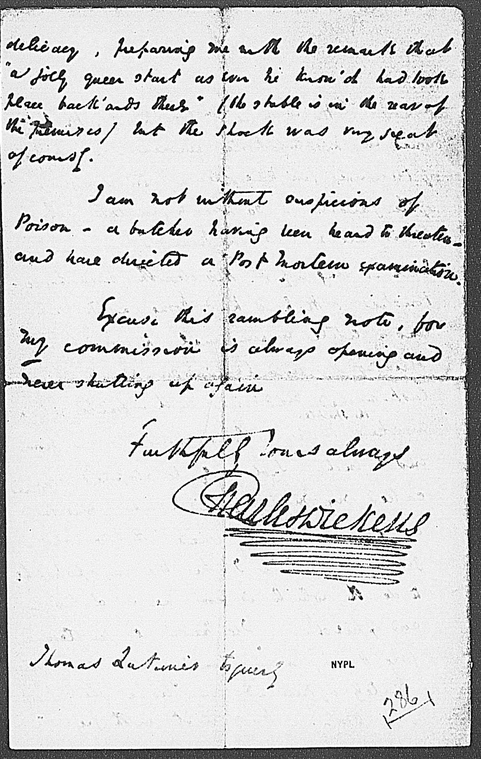 delicacy, preparing me with the remark that
"a jolly queer start as ever he know'd had took
place back'ards there" (the stable is in the rear of
the premises) but the shock was very great
of course.
I am not without suspicions of
Poison - a butcher having been heard to threaten -
and have directed a Post Mortem examination.
Excuse this rambling note, for
my commission is always opening and
never shutting up again
Faithfully Yours always
Charles Dickens
Thomas Latimer Esquire
NYPL
286